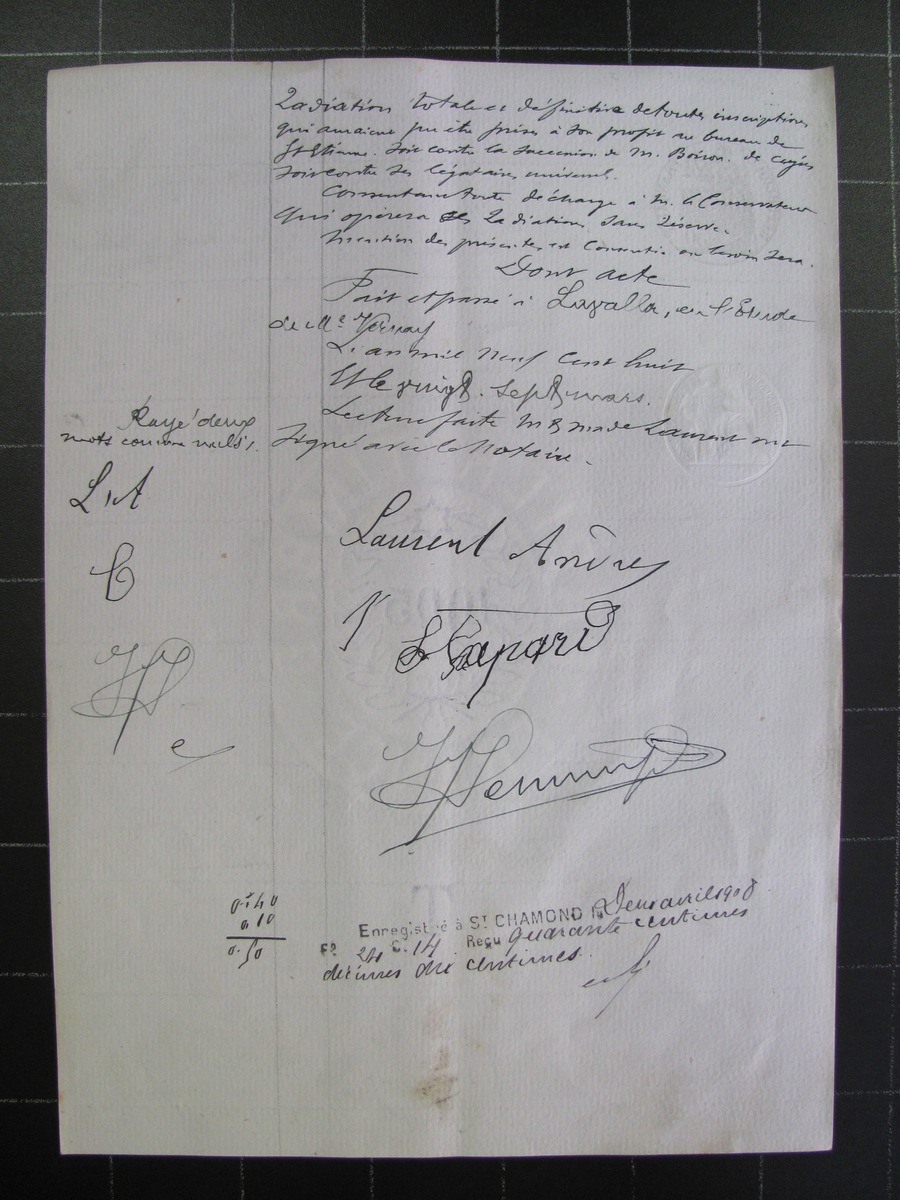 Radiation totale et définitive de toutes inscriptions
qui auraient pu être prises à son profit au bureau de
St Etienne. Soit contre la succession de M. Boiron. de cujus
soit contre ses légataires universels.
Consentant toute décharge à M. le Conservateur
qui opérera les Radiations sans réserve.
Mention des présentes est consentie où besoin sera.
Dont acte
Fait et passé à Lavalla, en l'Etude
de Me
L'an mil neuf cent huit
Et le vingt-sept mars.
Lecture faite M & made Laurent ont
signé avec le Notaire.
Rayé deux
mots comme nuls.
L. A
Laurent André
0.40
0.10
0.50
Enregistré à ST CHAMOND le Deux avril 1908
Fo 24 C. 14 Reçu quarante centimes
décimes dix centimes.